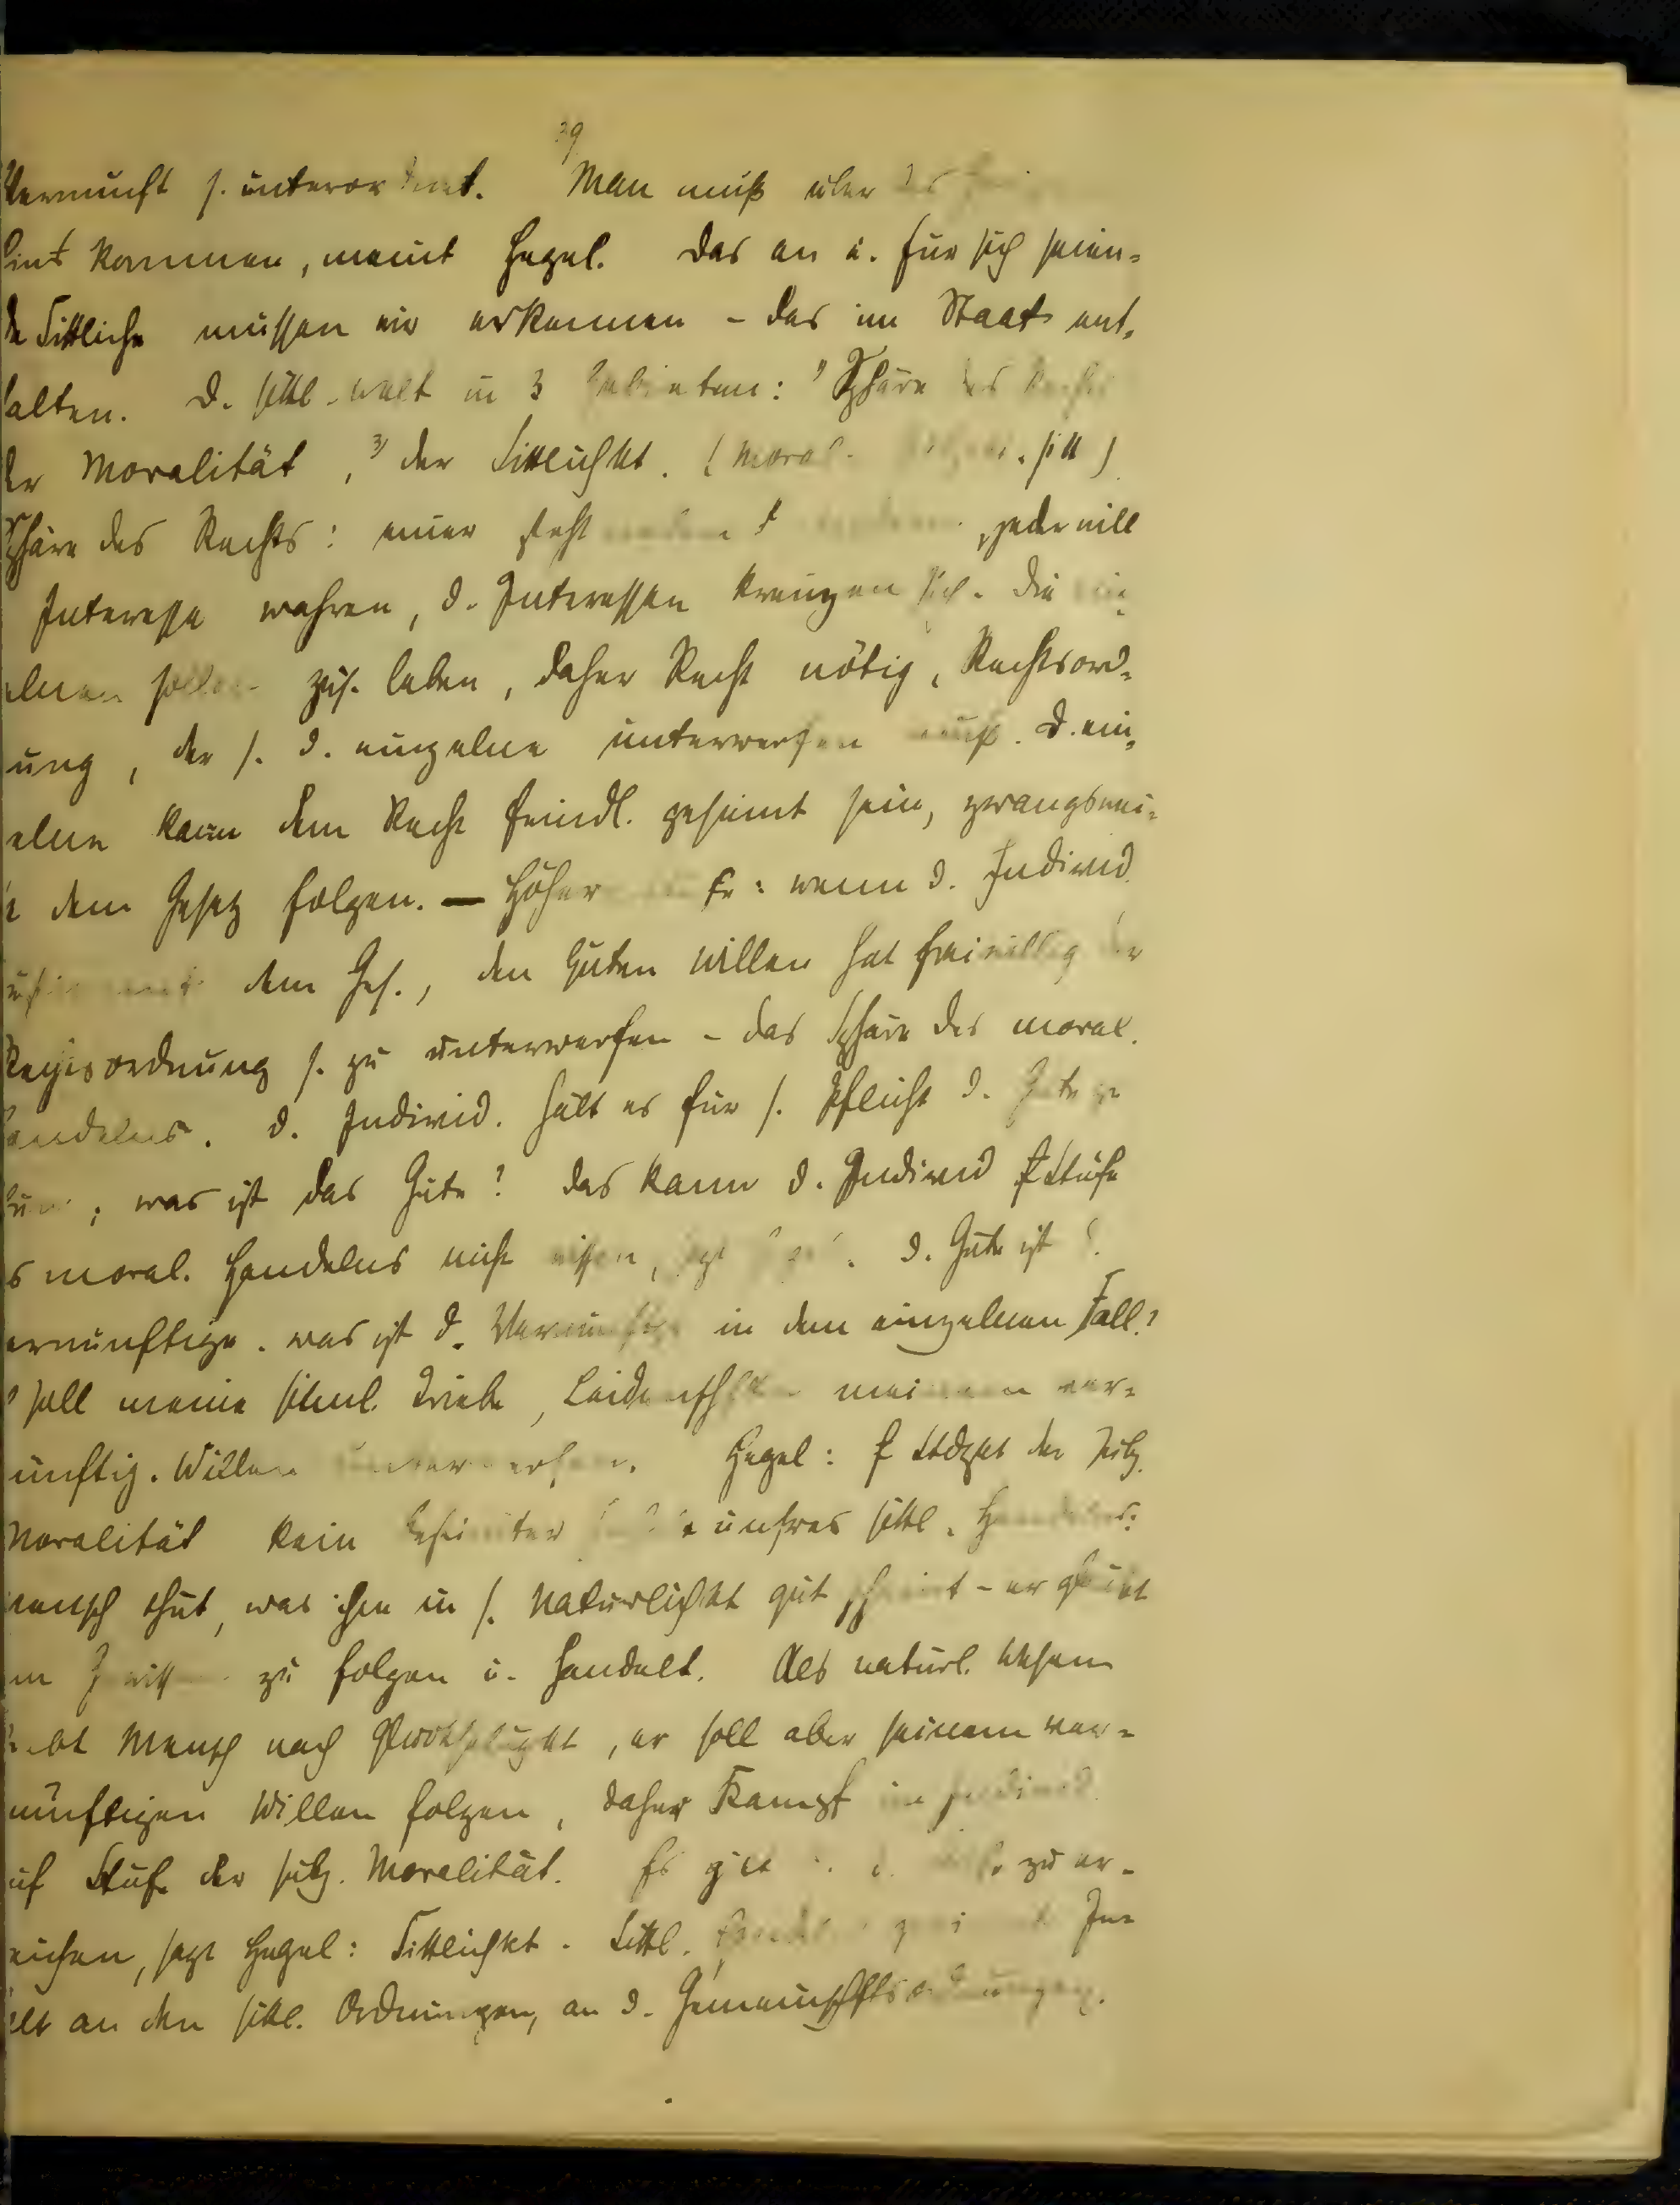 39
Vernunft s. unterordnet. Man muß über das
kommen, meint Hegel. Das an u. für sich seien=
de Sittliche müssen wir erkennen – das im Staat ent=
halten. D. sittl. Welt in 3 Gebieten: 1) Sphäre des Rechts
der Moralität, 3) der Sittlichkt. (moral. sittl)
Sphäre des Rechts: einer steht , jeder will
Interesse wahren, d. Interessen kreuzen sich. Die ein=
zelnen sollen zus. leben, daher Recht nötig, Rechtsord=
nung, der s. d. einzelne unterwerfen muß. D. ein=
zelne kann dem Recht feindl. gesinnt sein, zwangswei=
se dem Gesetz folgen. — Höher : wenn d. Individ.
zustimmt dem Ges., den guten Willen hat freiwillig der
Rechtsordnung s. zu unterwerfen – das Sphäre des moral.
Handelns. D. Individ. hält es für s. Pflicht d. Gute zu
tun; was ist das Gute? Das kann d. Individ Stufe
des moral. Handelns nicht wissen, sagt Hegel. D. Gute ist d.
Vernünftige. Was ist d. Vernünftige in dem einzelnen Fall?
soll meine sinnl. Triebe, Leidenschften meinem ver=
nünftig. Willen unterwerfen. Hegel: der subj.
Moralität kein bestimmter unsres sittl. Handelns:
Mensch thut, was ihm in s. Natürlichkt gut scheint – er glaubt
Gewissen zu folgen u. handelt. Als natürl. Wesen
strebt Mensch nach Glückseligkt, er soll aber seinem ver=
nünftigen Willen folgen, daher Kampf im Individ.
auf Stufe der subj. Moralität. Es gilt zu er=
reichen, sagt Hegel: Sittlichkt. Sittl. In=
halt an den sittl. Ordnungen, an d. Gemeinschftsordnungen.